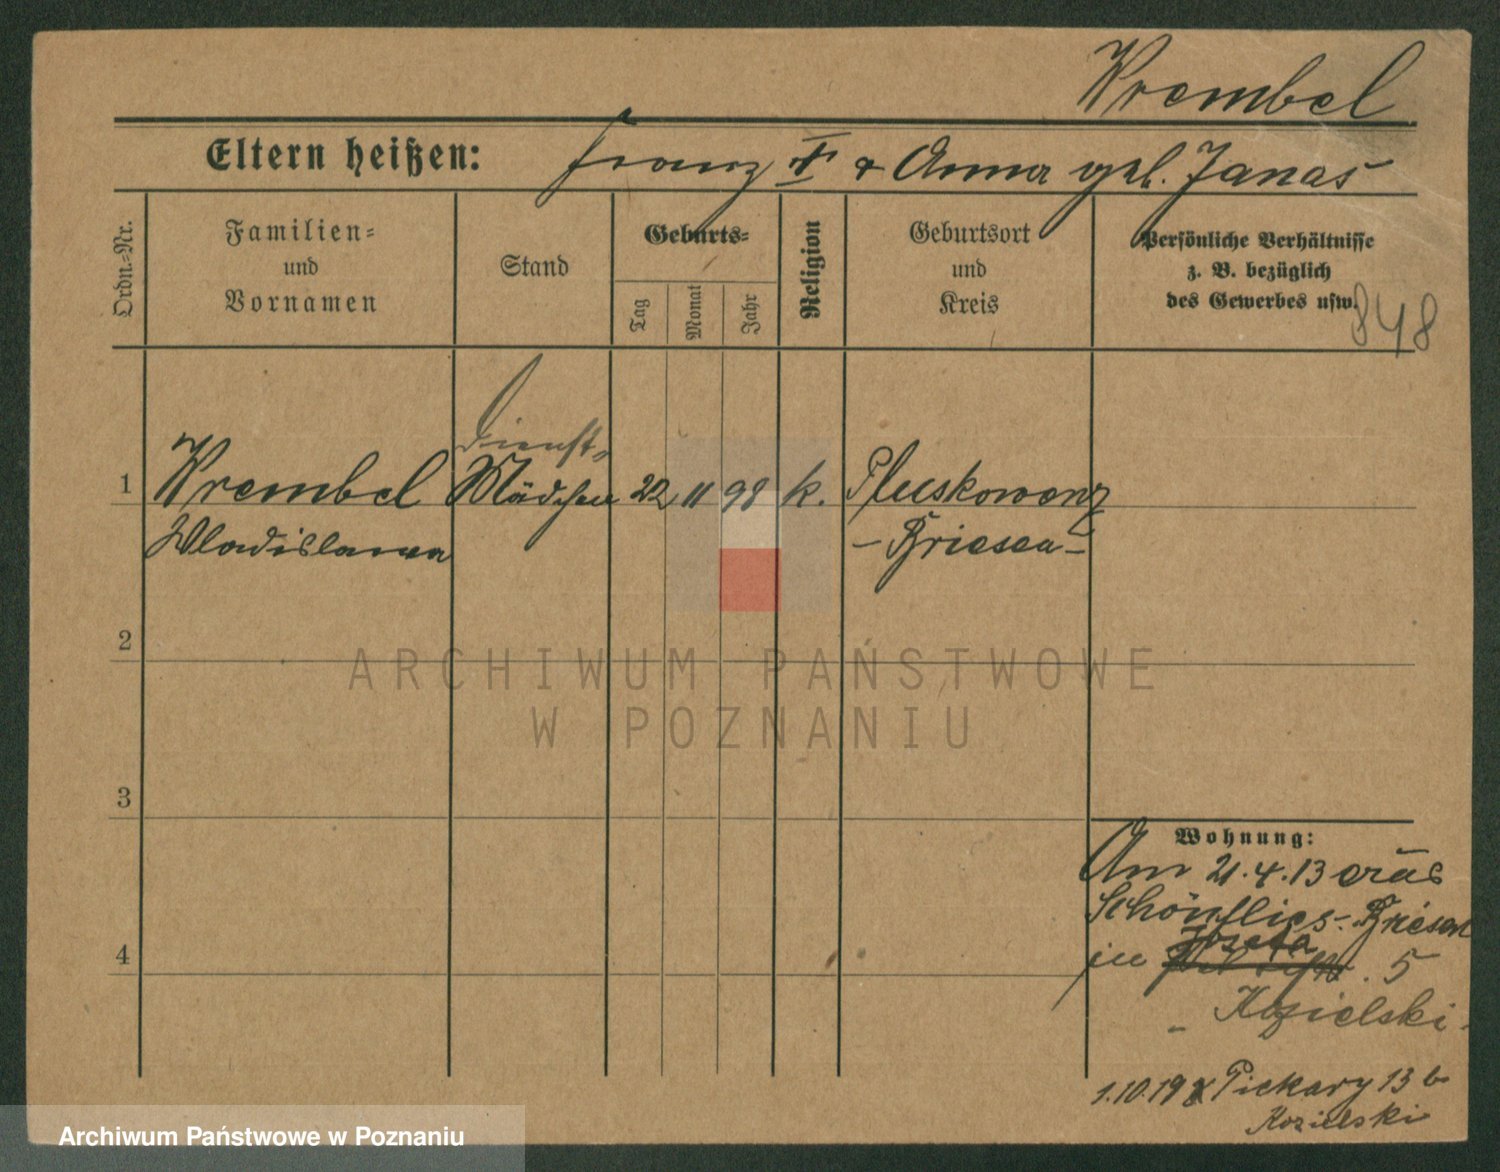 Wrembel
Eltern heißen: Franz † & Anna geb. Janas
Ordn.-Nr.
Familien-
und
Vornamen
Stand
Geburts-
Tag
Monat
Jahr
Religion
Geburtsort
und
Kreis
Persönliche Verhältnisse
z. B. bezüglich
des Gewerbes usw.
848
Dienst-
1 Wrembel Mädchen 22 11 98 k. Pluskowenz
Wladislawa - Briesen -
2
ARCHIWUM PAŃSTWOWE
W POZNANIU
3
Wohnung:
Am 21.4.13 aus
Schönflies - Briesen
Josefa
in 5
- Kozielski -
1.10.19 Piekary 13 b
Kozielski
4
Archiwum Państwowe w Poznaniu